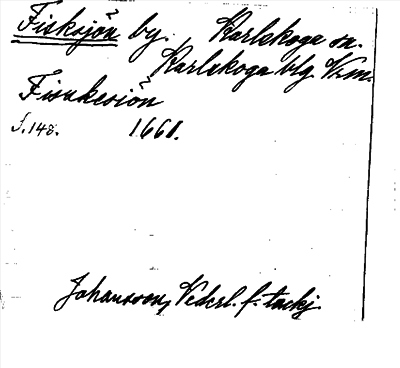 Fisksjön by. Karlskoga sn.
Karlskoga blg Vrm.
Fisukesiön
S. 148. 1661.
Johansson, Vederl. f. tackj.